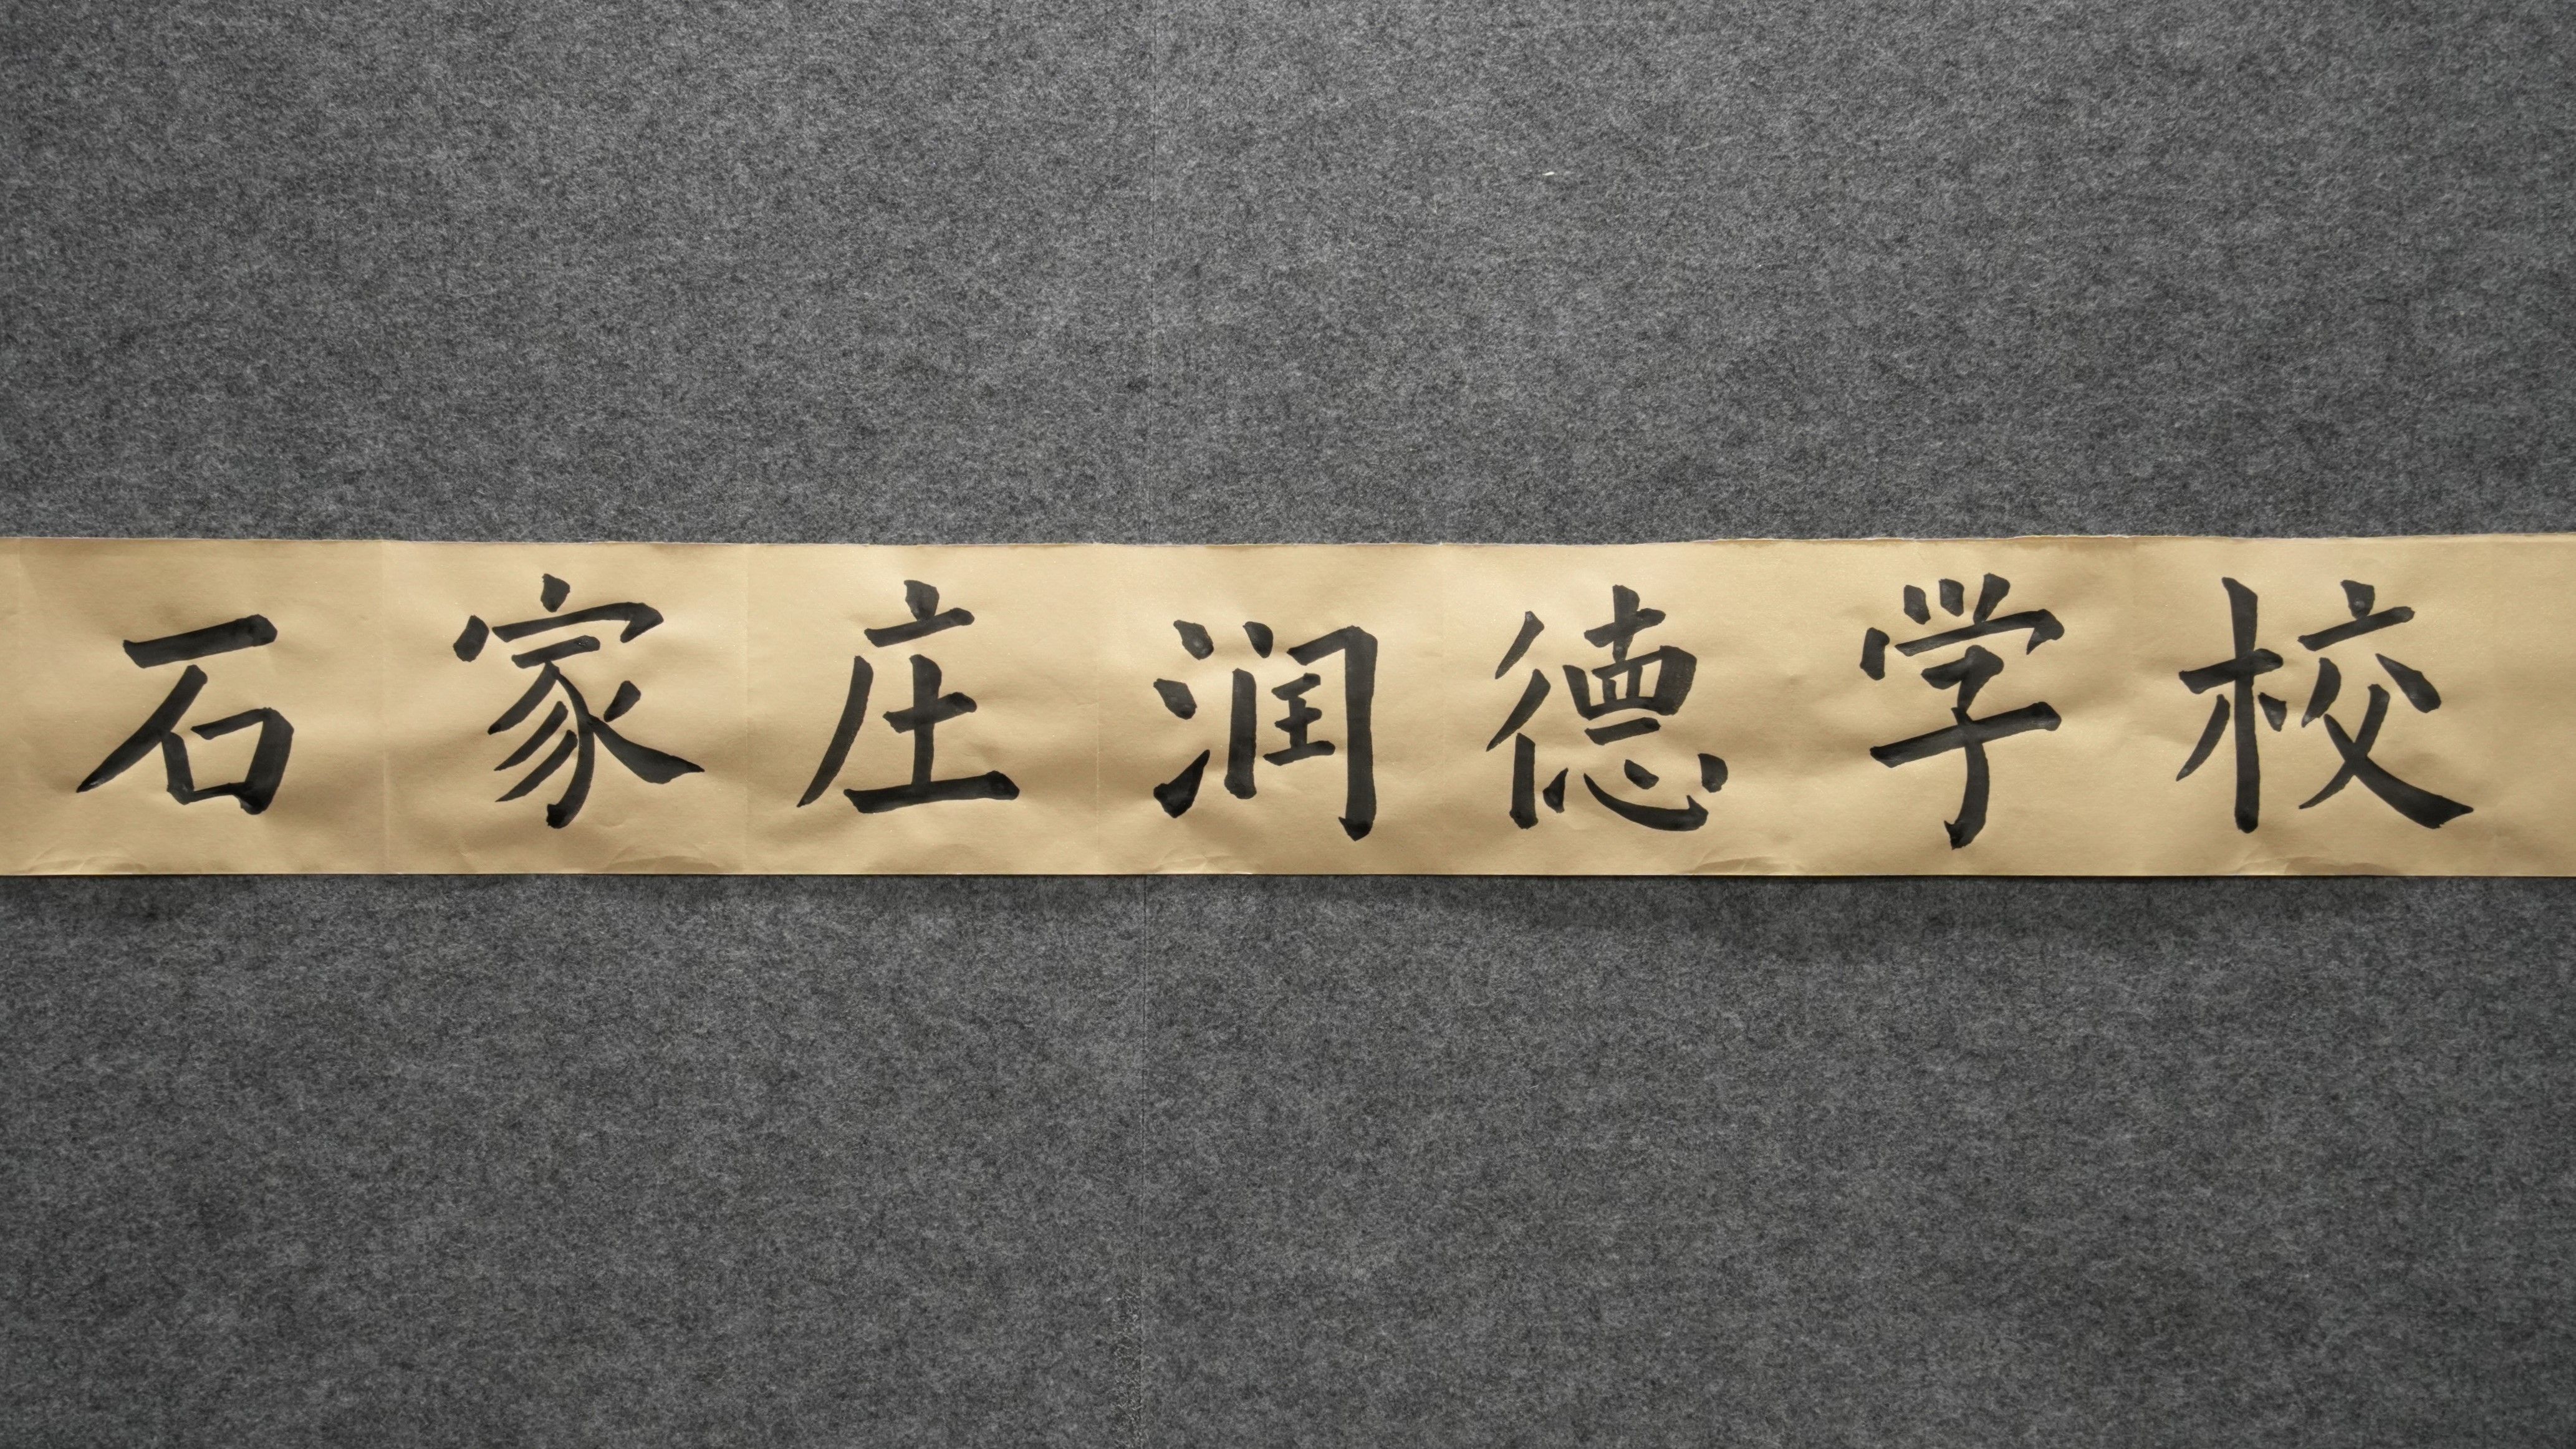 石家庄润德学校